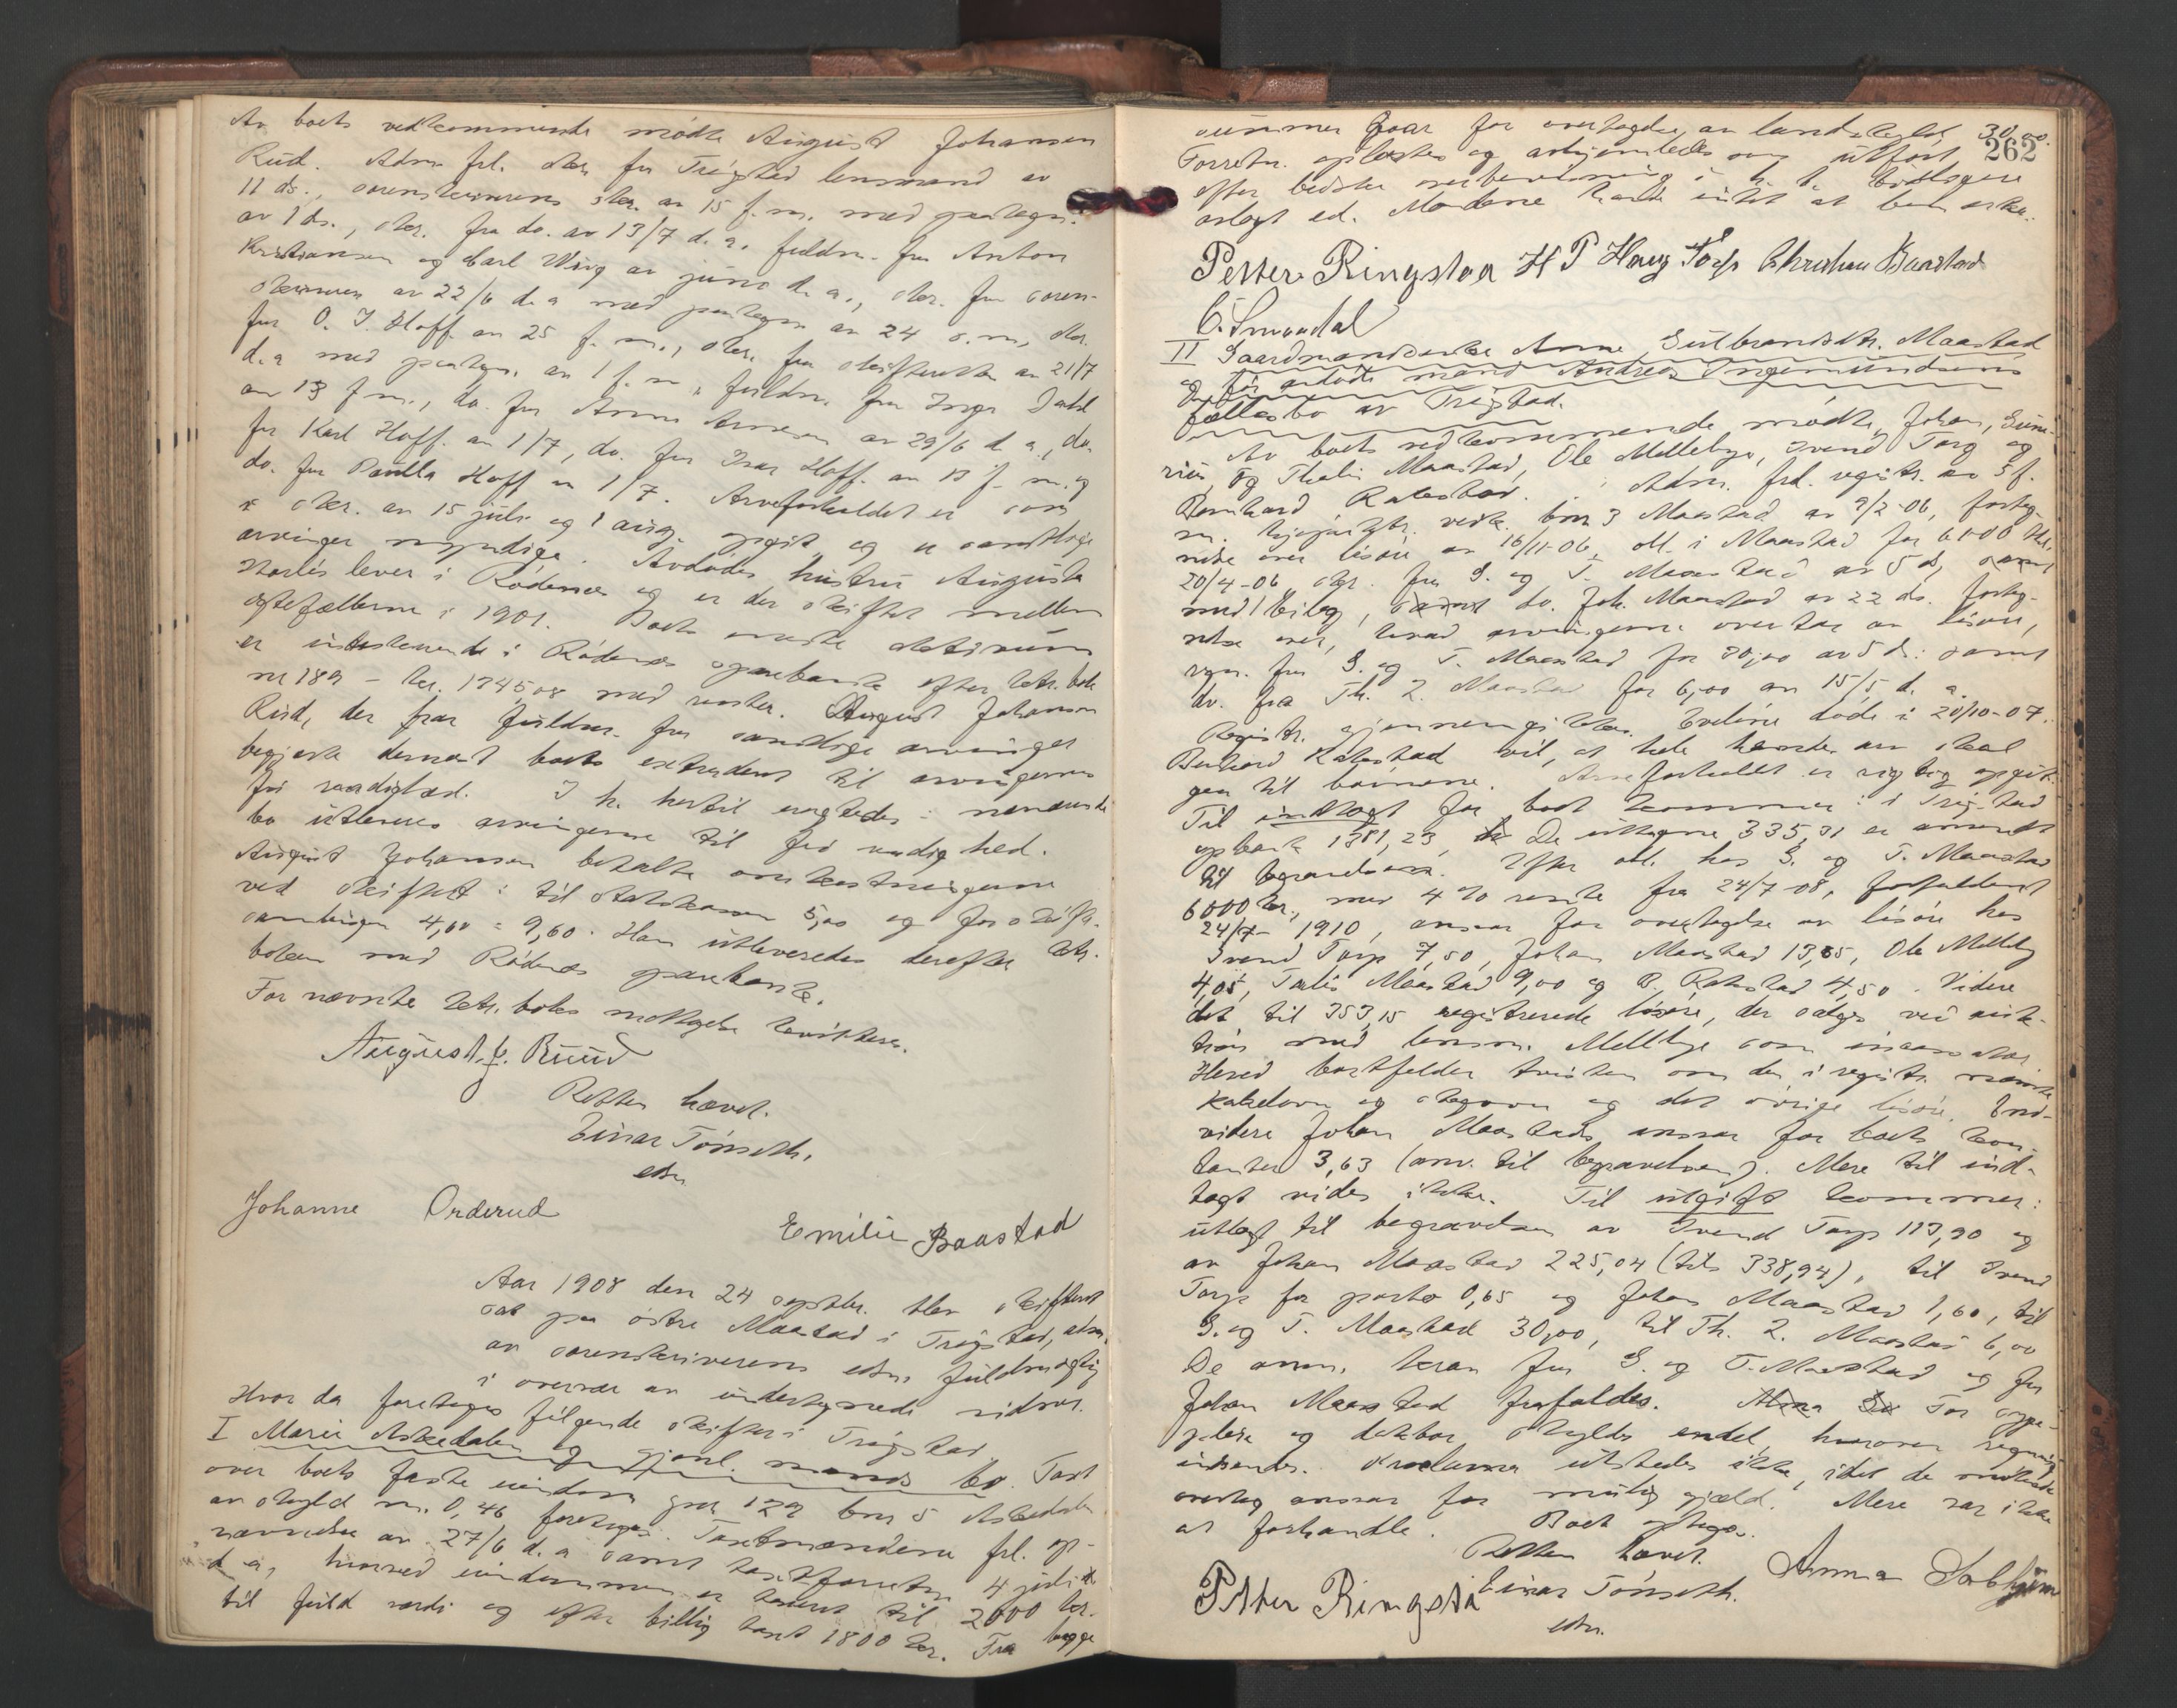 Av boets vedkommende mødte August Johansen
Rud. Adm. frl. skr. fra Trøgstad lensmand av
11 ds., sorenskriverens skr. av 15 f. m. med paategn.
av 1 ds., skr. fra do. av 13/7 d. a. fuldm. fra Anton
Kristiansen og Carl Wiig av juni d. a., skr. fra soren-
skriveren av 22/6 d. a. med paategn. av 24 s. m., skr.
fra O. J. Hoff av 25 f. m., skr. fra skifteretten av 21/7
d. a. med paategn. av 1 f. m., fuldm. fra Inga Dahl
av 13 f. m., do. fra Anna Arnesen av 29/6 d. a., do.
fra Karl Hoff av 1/7, do. fra Ivar Hoff av 13 f. m. og
do. fra Paulla Hoff av 1/7. Arveforholdet er som
i skr. av 15 juli og 1 aug. opgit og er samtlige
arvinger myndige. Avdødes hustru Augusta
lever i Rødenes og er der skiftet mellem
egtefællerne i 1901. Boets eneste aktivum
er indestaaende i Rødenes sparebank efter ktr. bok
nr 189 – kr. 1745,08 med renter. August Johansen
Rud, der har fuldm. fra samtlige arvinger
begjærte dernæst boets extradert til arvingernes
fri raadighed. I h. hertil avsagdes: nærværende
bo utleveres arvingerne til fri raadighed.
August Johansen betalte omkostningerne
ved skiftet: til statskassen 5,00 og for skifte-
samlingen 4,60 = 9,60. Ham utleveredes derefter ktr.
boken med Rødenes sparebank.
For nævnte ktr. boks mottagelse kvitteres.
August J. Ruud
Retten hævet.
Einar Tønseth.
edsv.
Johanne Orderud
Emilie Baastad
Aar 1908 den 24 septbr. blev skifteret
sat paa østre Maastad i Trøgstad, adm.
av sorenskriverens edsv. fuldmægtig
i overvær av undertegnede vidner.
Hvor da foretoges følgende skifter i Trøgstad
I Marie Askedalen og gjenl. mands bo. Taxt
over boets faste eiendom gnr 129 bnr 5 Askedalen
av skyld m. 0,46 foretoges. Taxtmændene frl. op-
nævnelse av 27/6 d. a. samt taxtforretn. 4 juli
d. a., hvorved eiendommen er taxert til 2000 kr.
til fuld værdi og efter billig taxt 1800 kr. Fra begge
262
summer gaar for overtagelse av landskyld 30,00.
Forretn. oplæstes og avhjemledes som utført
efter bedste overbevisning i h. t. tidligere
avlagt ed. Mændene havde intet at bemerke.
Petter Ringstad H P Haug Torp Christian Baastad
C. Smaadal
II Gaardmandsenke Anne Gulbrandsdtr. Maastad
og før avdøde mand Andreas Ingemundsens
fællesbo av Trøgstad.
Av boets vedkommende mødte Johan, Gune-
rius og Thalis Maastad, Ole Mellebye, Svend Torp og
Bernhard Rakestad. Adm. frl. registr. av 5 f.
m. hjøpektr. vedk. bnr 3 Maastad av 9/2-06, forteg-
nelse over løsøre av 16/11-06, obl. i Maastad for 6000 kr.
20/4-06, skr. fra G. og T. Maastad av 5 ds, samt
med 1 bilag, do. Joh. Maastad av 22 ds. forteg-
nelse over, hvad arvingerne overtar av løsøre,
regn. fra G. og T. Maastad for 30,00 av 5 ds. samt
do. fra Th. L. Maastad for 6,00 av 15/5 d. a.
Registr. gjennemgikkes. Eveline døde i 20/10-07.
Bernhard Rakestad vil, at hele hendes arv skal
gaa til barnene. Arveforholdet er rigtig opgit.
Til indtægt for boet kommer: i Trøgstad
spbank 1381,23, De uttagne 335,31 er anvendt
til begravelsen. Efter obl. hos G. og T. Maastad
6000 kr., med 4 % rente fra 24/7-08, forfaldent
24/7-1910, ansvar for overtagelse av løsøre hos
Svend Torp 7,50, Johan Maastad 13,65, Ole Melleby
4,05, Talis Maastad 9,00 og B. Rakestad 4,50. Videre
det til 353,15 registrerede løsøre, der sælges ved auk-
tion med lensm. Mellbye som inkassator
Herved bortfalder tvisten om den i registr. nævnte
kakelovn og stegovn og det øvrige løsøre. End-
videre Johan Maastads ansvar for boets kon-
tanter 3,63 (anv. til begravelsen). Mere til ind-
tægt vides ikke. Til utgift kommer:
utlægt til begravelsen av Svend Torp 113,90 og
av Johan Maastad 225,04 (tils 338,94), til Svend
Torp for porto 0,65 og Johan Maastad 1,60, til
G. og T. Maastad 30,00, til Th. L. Maastad 6,00
De anm. krav fra G. og T. Maastad og fra
Johan Maastad frafaldes. For syge-
pleie og doktor skyldes endel, hvorover regning
indsendes. Proklama utstedes ikke, idet de mødende
overtog ansvar for mulig gjæld. Mere var ikke
at forhandle. Boet optoges.
Retten hævet.
Petter Ringstad
Einar Tønseth.
edsv.
Anna